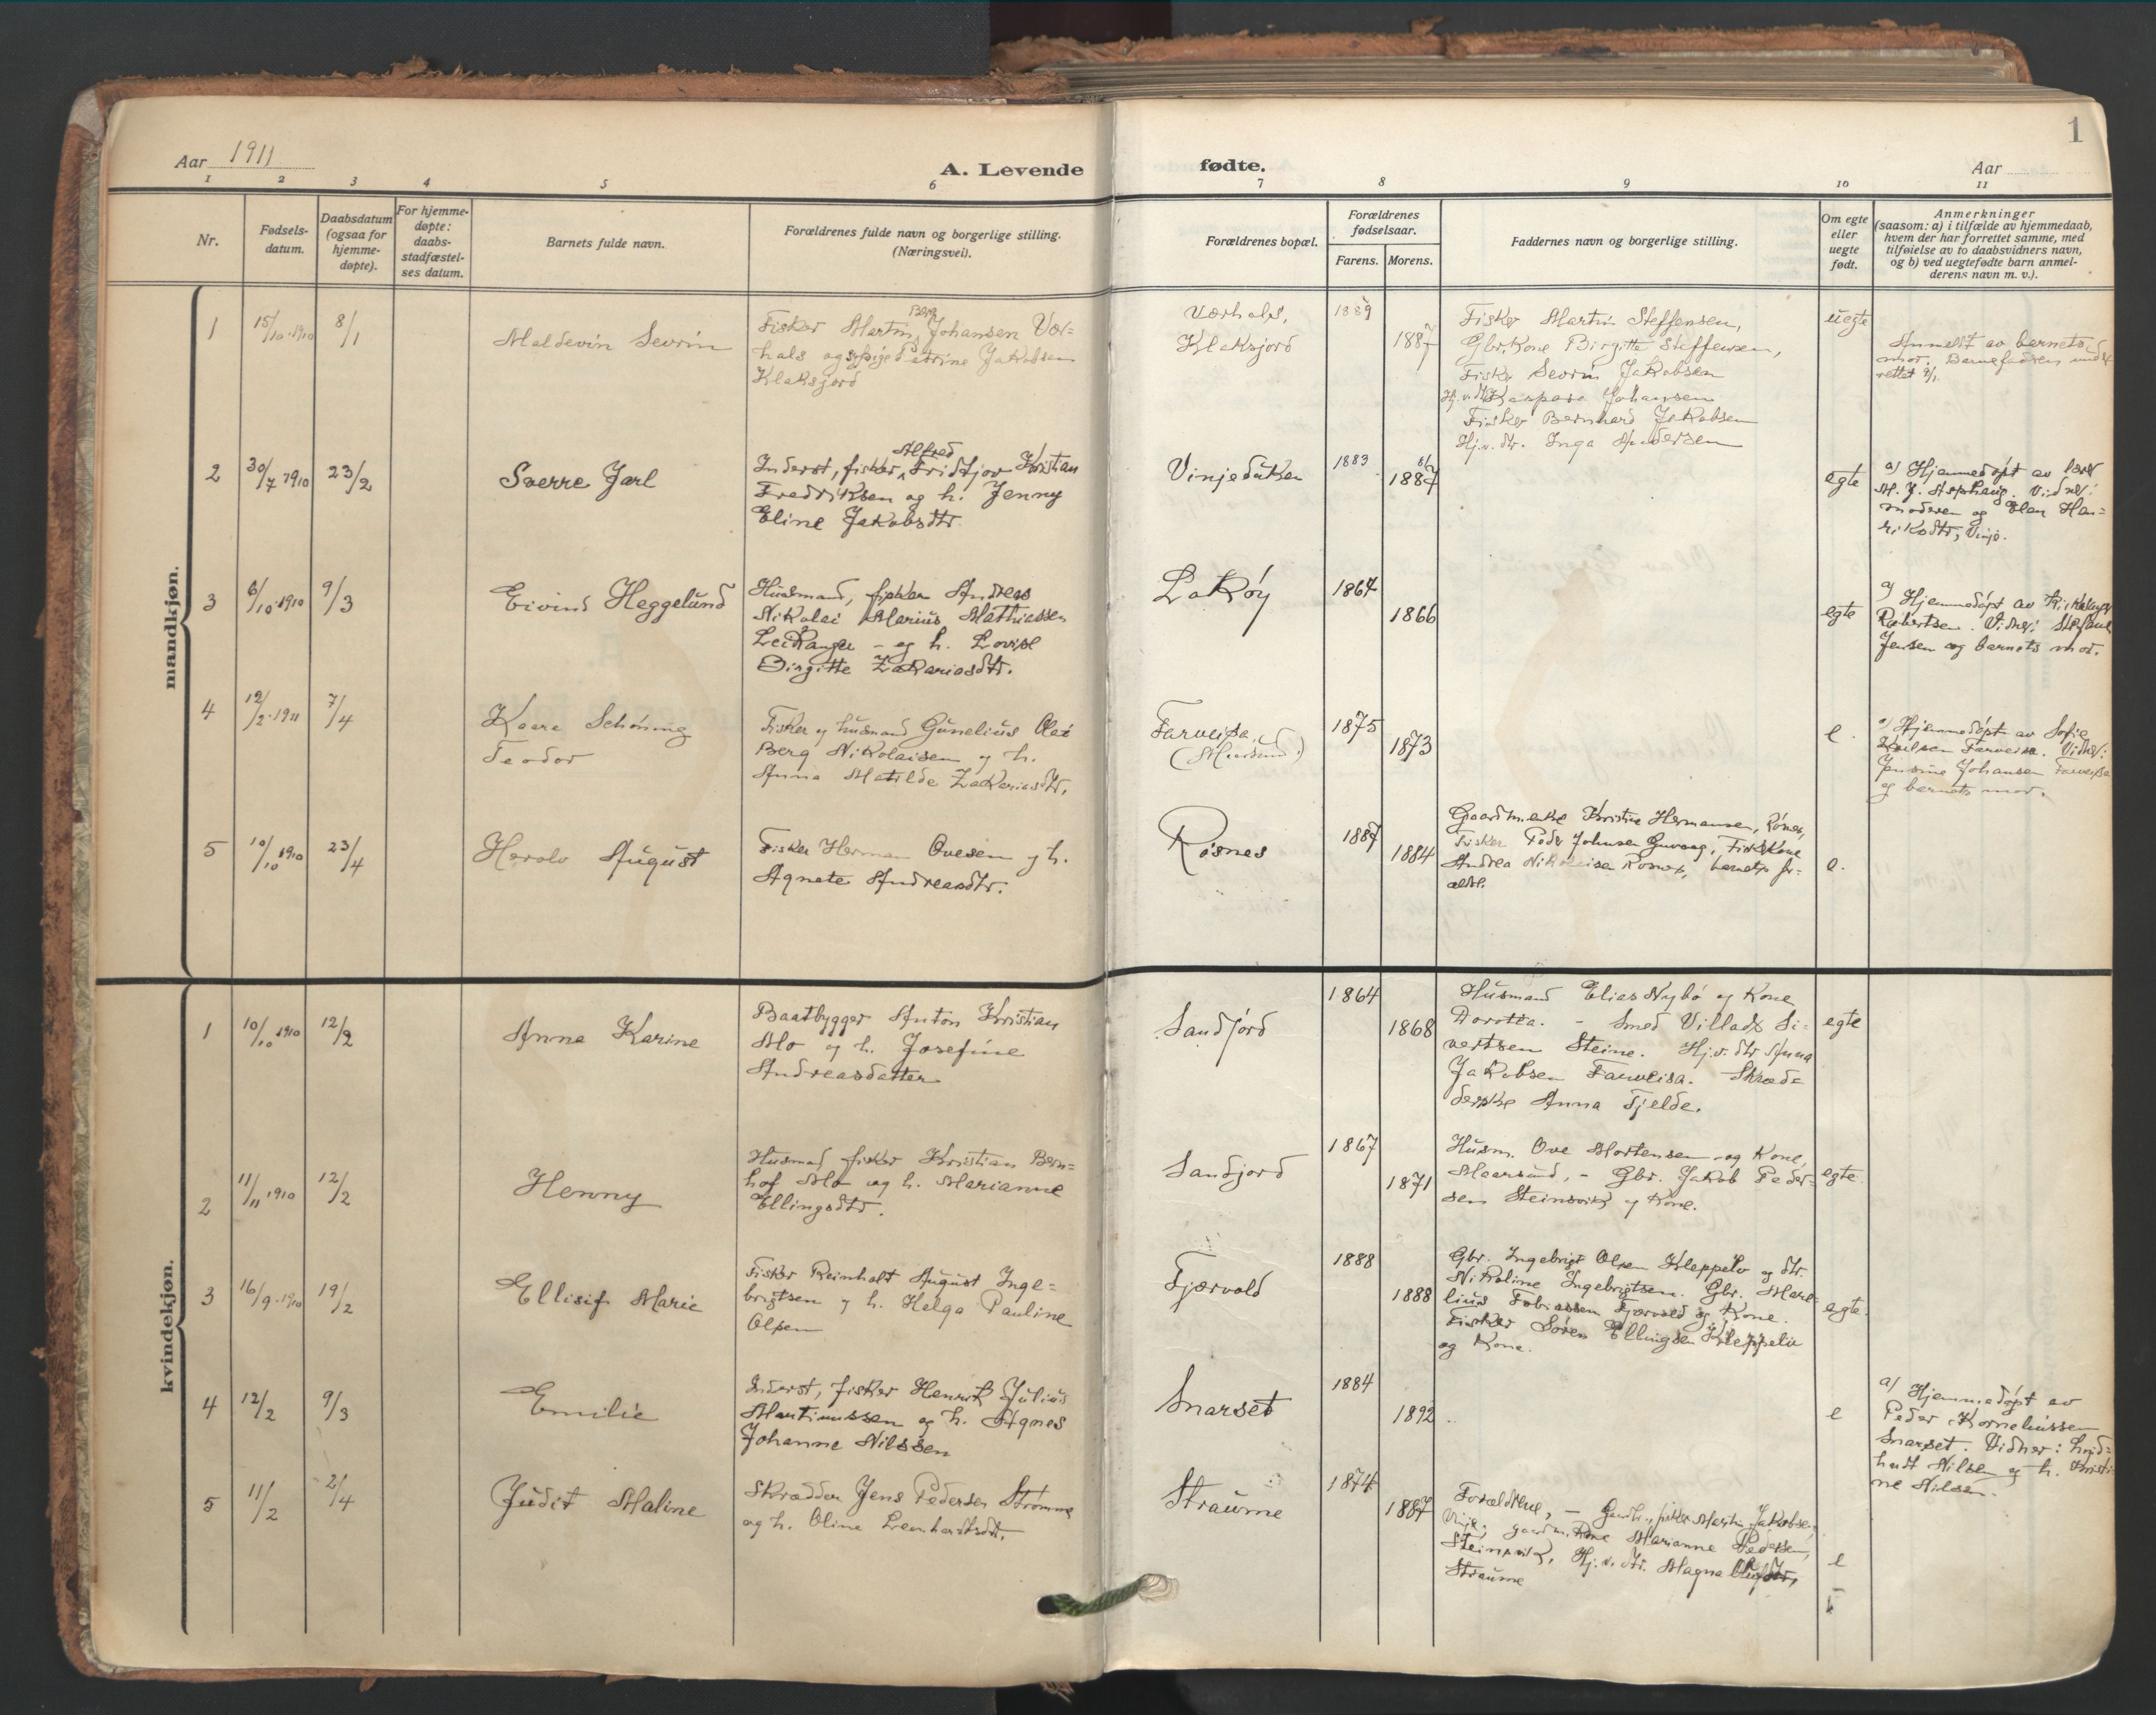 1
Aar 1911
A. Levende
fødte.
Aar
1 2 3 4 5 6 7 8 9 10 11
Nr.
Fødsels-
datum.
Daabsdatum
(ogsaa for
hjemme-
døpte).
For hjemme-
døpte:
daabs-
stadfæstel-
ses datum.
Barnets fulde navn.
Forældrenes fulde navn og borgerlige stilling.
(Næringsvei).
Forældrenes bopæl.
Forældrenes
fødselsaar.
Farens. Morens.
Faddernes navn og borgerlige stilling.
Om egte
eller
uegte
født.
Anmerkninger
(saasom: a) i tilfælde av hjemmedaab,
hvem der har forrettet samme, med
tilføielse av to daabsvidners navn,
og b) ved uegtefødte barn anmel-
derens navn m. v.).
mandkjøn.
1
15/10 1910
8/1
Maldevin Sevrin
Berg
Fisker Martin Johansen Vær-
hals og pige Petrine Jakobsen
Klaksjord
Værhals,
Klaksjord
1889
1887
Fisker Martin Steffensen,
Gbr. Kone Birgitte Steffensen,
Fisker Sevrin Jakobsen
Hj.v. dtr. Kaspara Johansen
Fisker Bernhard Jakobsen
Hj.v. dtr. Inga Andersen
uegte
Anmeldt av barnets
mor. Barnefaderen under
rettet 9/1.
2
30/7 1910
23/2
Sverre Jarl
Alfred
Inderst, fisker, Fridtjov Kristian
Fredriksen og h. Jenny
Eline Jakobsdtr.
Vinjedulsen
1883
1887
egte
a) Hjemmedøpt av lærer
M. J. Asphaug. Vidner:
moderen og Elen Hen-
rikodtr, Vinje.
3
6/10 1910
9/3
Eivind Heggelund
Husmand, fisker Andreas
Nikolai Marius Mathiassen
Leikanger - og h. Lovise
Birgitte Zakariasdtr.
Lakøy
1867
1866
egte
a) Hjemmedøpt av
Robertsen. Vidner: Stefan
Jensen og barnets mor.
4
12/2 1911
7/4
Kaare Schøning
Teodor
Fisker og husmand Gunelius Olai
Berg Nikolaisen og h.
Anna Matilde Zakariasdtr.
Farveisa,
1875
1873
e.
a) Hjemmedøpt av Sofie
Karlsen Farveisa. Vidner:
Jensine Johansen Farveisa
og barnets mor.
5
10/10 1910
23/4
Harolv August
Fisker Herman Ovesen og h.
Agnete Andreasdtr.
Røsnes
1887
1884
Gaardm.enke Kristine Hermansen, Røsnes,
Fisker Peder Johnsen Guvaag, Fiskkone
Andrea Nikolaisen Røsnes, barnets for-
ældre.
e.
kvindekjøn.
1
10/10 1910
12/2
Anna Karine
Baatbygger Anton Kristian
Mo og h. Josefine
Andreasdatter
Sandfjord
1864
1868
Husmand Elias Nybø og Kone
Dorotea. - Smed Villads Si-
vertsen Steine. Hj.v. dtr Anna
Jakobsen Farveisa. Skræd-
derske Anna Fjelde.
egte
2
11/11 1910
12/2
Henny
Husmand fisker Kristian Bern-
hof Mo og h. Marianne
Ellingsdtr.
Sandjord
1867
1871
Husm. Ove Mortensen og Kone,
Maarsund, - Gbr. Jakob Peder-
sen Steinsvik og Kone.
egte.
3
16/9 1910
19/2
Ellisif Marie
Fisker Reinholt August Inge-
brigtsen og h. Helga Pauline
Olsen
Fjærvold
1888
1888
Gbr. Ingebrigt Olsen Kleppelv og dtr.
Nikoline Ingebrigtsen. Gbr. Mare-
lius Tobiassen Fjærvold og Kone.
Fisker Søren Ellingsen Kleppelv
og Kone.
egte.
4
12/2
9/3
Emilie
Inderst, fisker Henrik Julius
Martinussen og h. Agnes
Johanne Nilssen
Snarset
1884
1892
e
a) Hjemmedøpt av
Peder Korneliussen
Snarset. Vidner:
Nilsen og h. Kristi-
ne Nilsen.
5
11/2
2/4
Judit Maline
Skrædder Jens Pedersen Strømme
og h. Oline Leonhardsdt.
Straume
1874
1887
Forældrene, - Gaardb., fisker Martin Jakobsen
Vinje, gaardm. Kone Marianne Pedersen,
Steinsvik, Hj.v. dtr. Magna
Straume
e